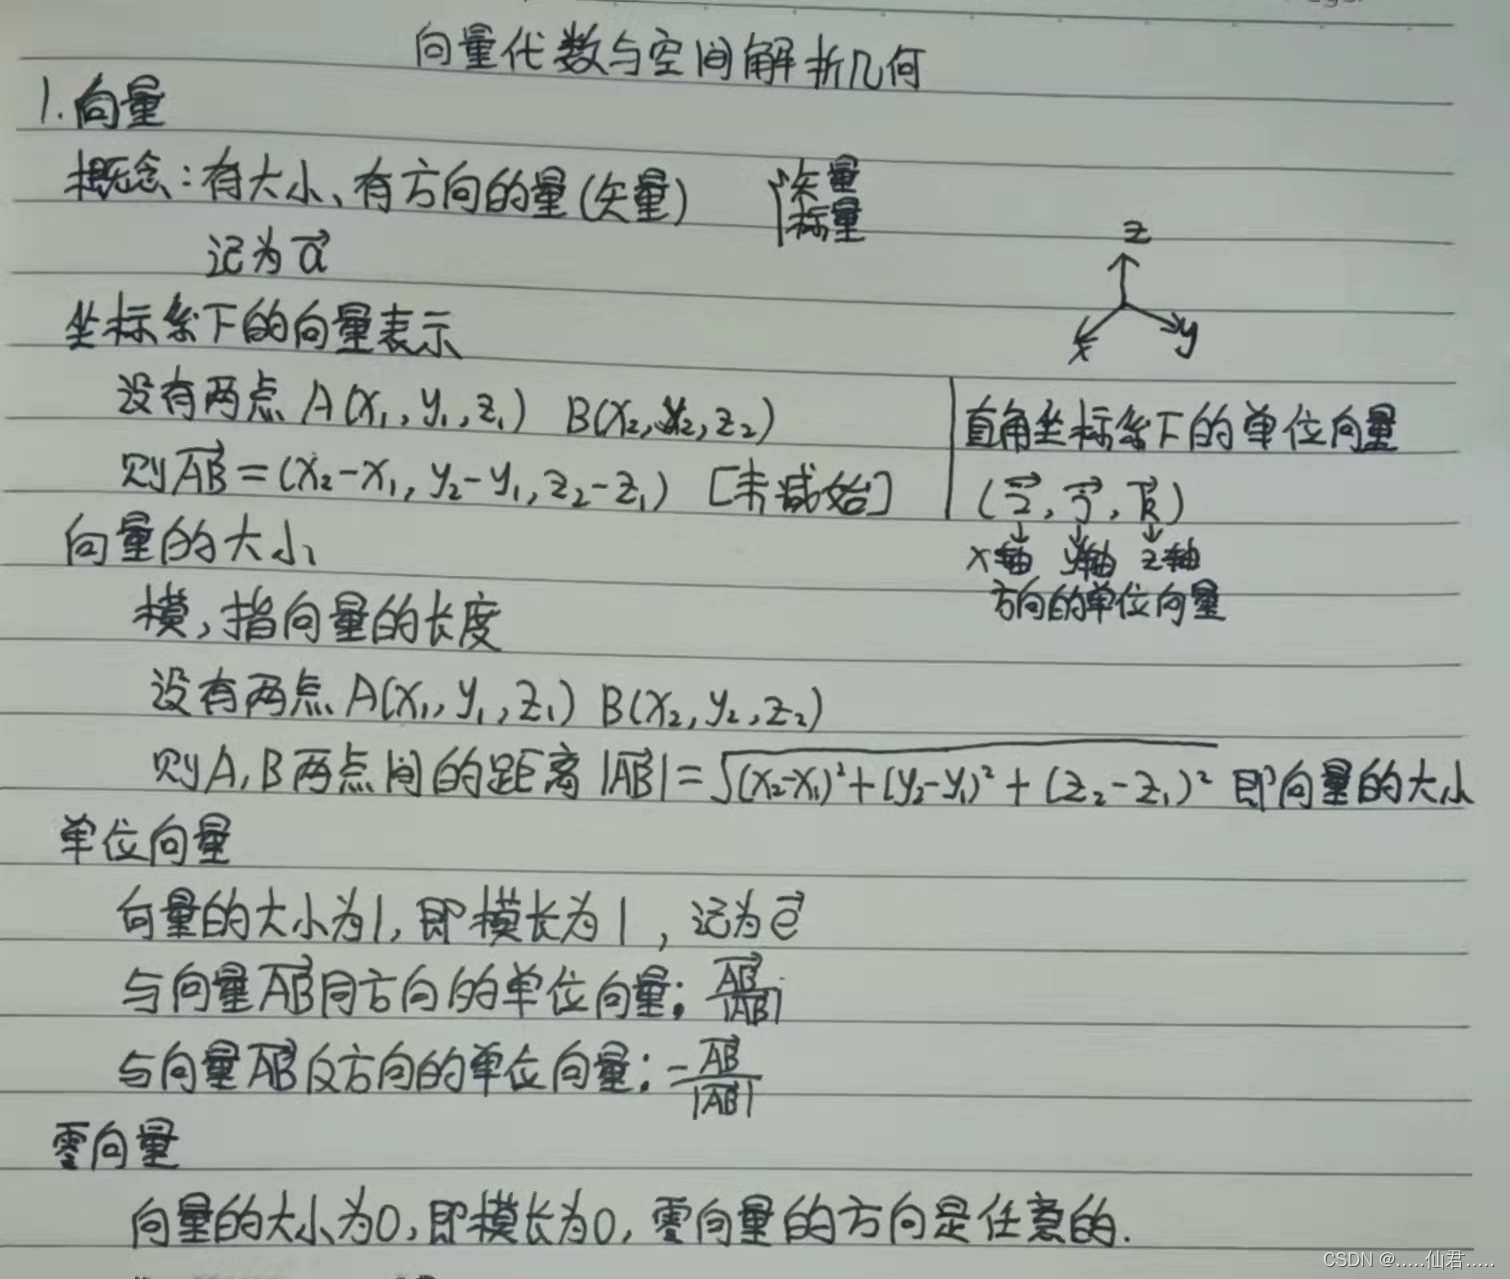 向量代数与空间解析几何
1.向量
概念:有大小、有方向的量(矢量)
矢量
标量
记为a⃗
z
x
y
坐标系下的向量表示
设有两点 A(x₁,y₁,z₁) B(x₂,y₂,z₂)
则AB⃗=(x₂-x₁,y₂-y₁,z₂-z₁) [末减始]
直角坐标系下的单位向量
(i⃗,j⃗,k⃗)
↓ ↓ ↓
x轴 y轴 z轴
方向的单位向量
向量的大小
模,指向量的长度
设有两点A(x₁,y₁,z₁) B(x₂,y₂,z₂)
则A,B两点间的距离|AB⃗|=√(x₂-x₁)²+(y₂-y₁)²+(z₂-z₁)² 即向量的大小
单位向量
向量的大小为1,即模长为1,记为e⃗
与向量AB⃗同方向的单位向量:AB⃗/|AB⃗|
与向量AB⃗反方向的单位向量:-AB⃗/|AB⃗|
零向量
向量的大小为0,即模长为0,零向量的方向是任意的.
CSDN @.....仙君.....